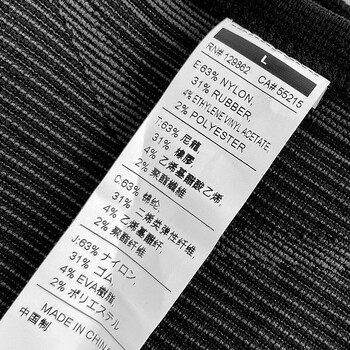 L
RN# 129862 CA# 55215
E:63% NYLON,
31% RUBBER
4% ETHYLENE VINYL ACETATE,
2% POLYESTER
T:63% 尼龍,
31% 橡膠,
4% 乙烯基酯酸乙烯
2% 聚酯纖維
C:63% 锦纶,
31% 二烯类弹性纤维,
4% 乙烯基酯纤,
2% 聚酯纤维
J:63% ナイロン,
31% ゴム,
4% EVA樹脂
2% ポリエステル
MADE IN CHINA
中国制